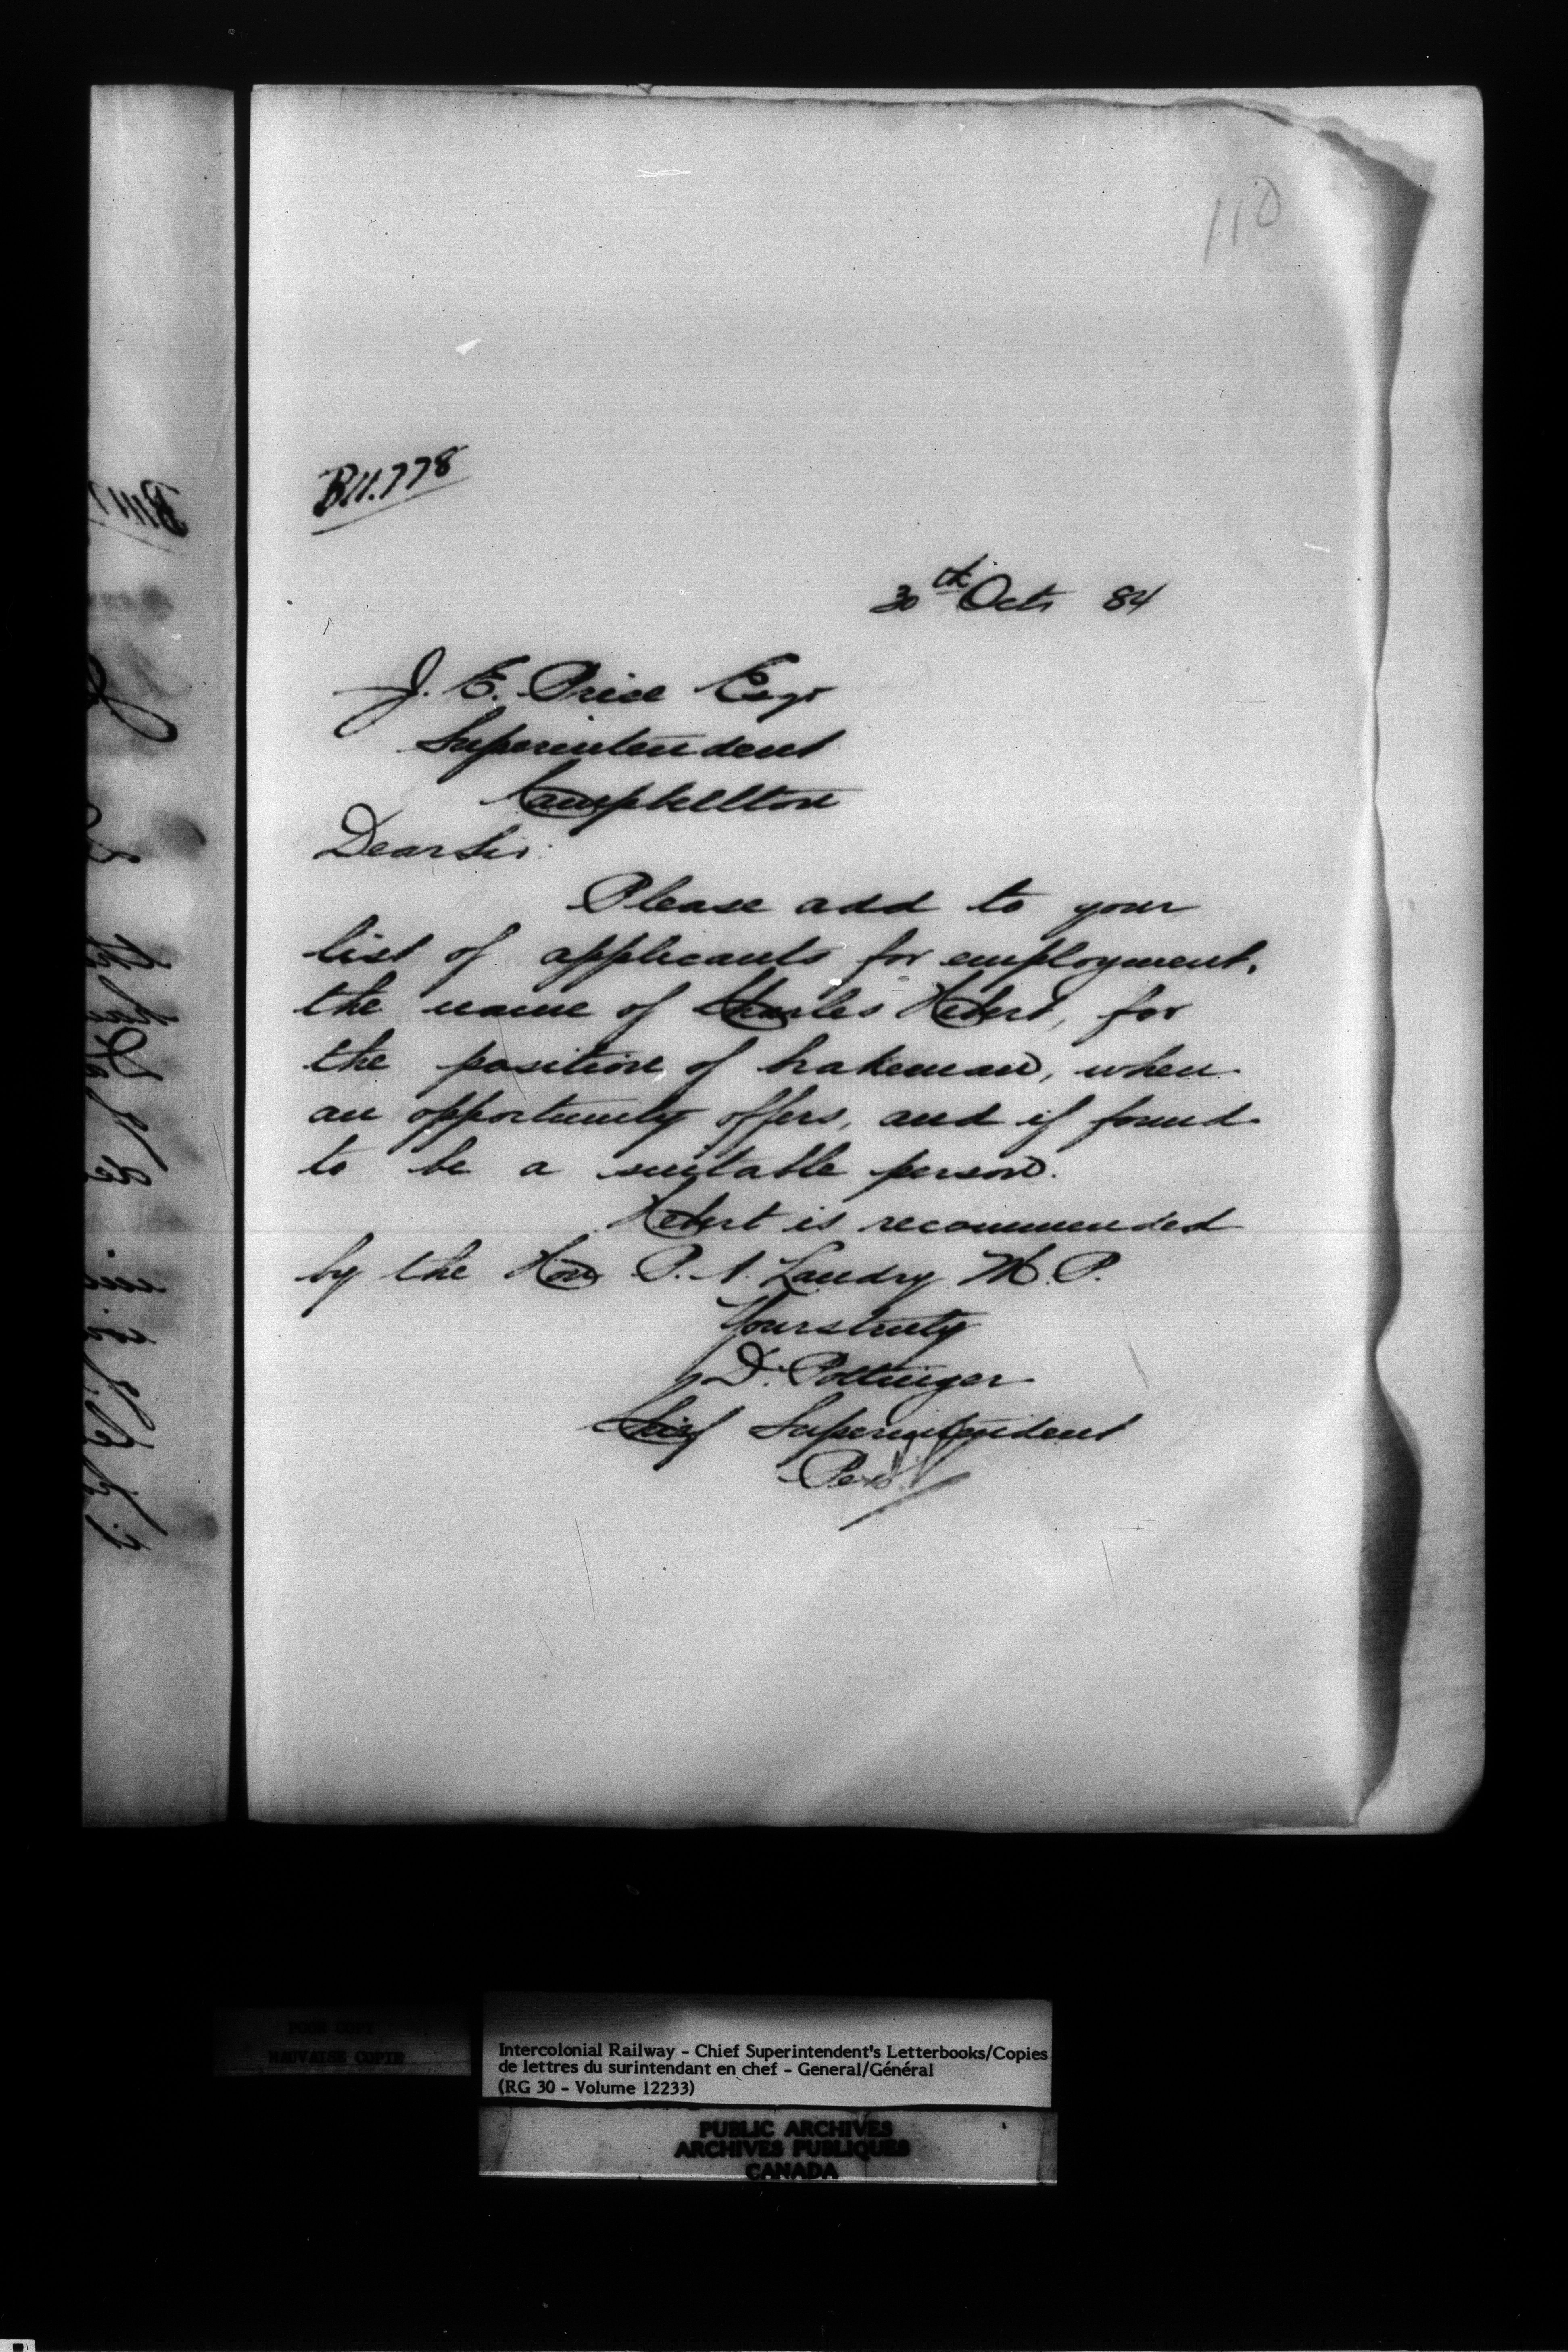 110
B11.778
30th Octr 84
J. E. Price Esqr
Superintendent
Campbellton
Dear Sir:
Please add to your
list of applicants for employment,
the name of Charles Hebert, for
the position of brakeman, when
an opportunity offers, and if found
to be a suitable person.
Hebert is recommended
by the Hon P. A. Landry M.P.
Yours truly
D. Pottinger
Chief Superintendent
Per
POOR COPY
MAUVAISE COPIE
Intercolonial Railway - Chief Superintendent's Letterbooks/Copies
de lettres du surintendant en chef - General/Général
(RG 30 - Volume 12233)
PUBLIC ARCHIVES
ARCHIVES PUBLIQUES
CANADA